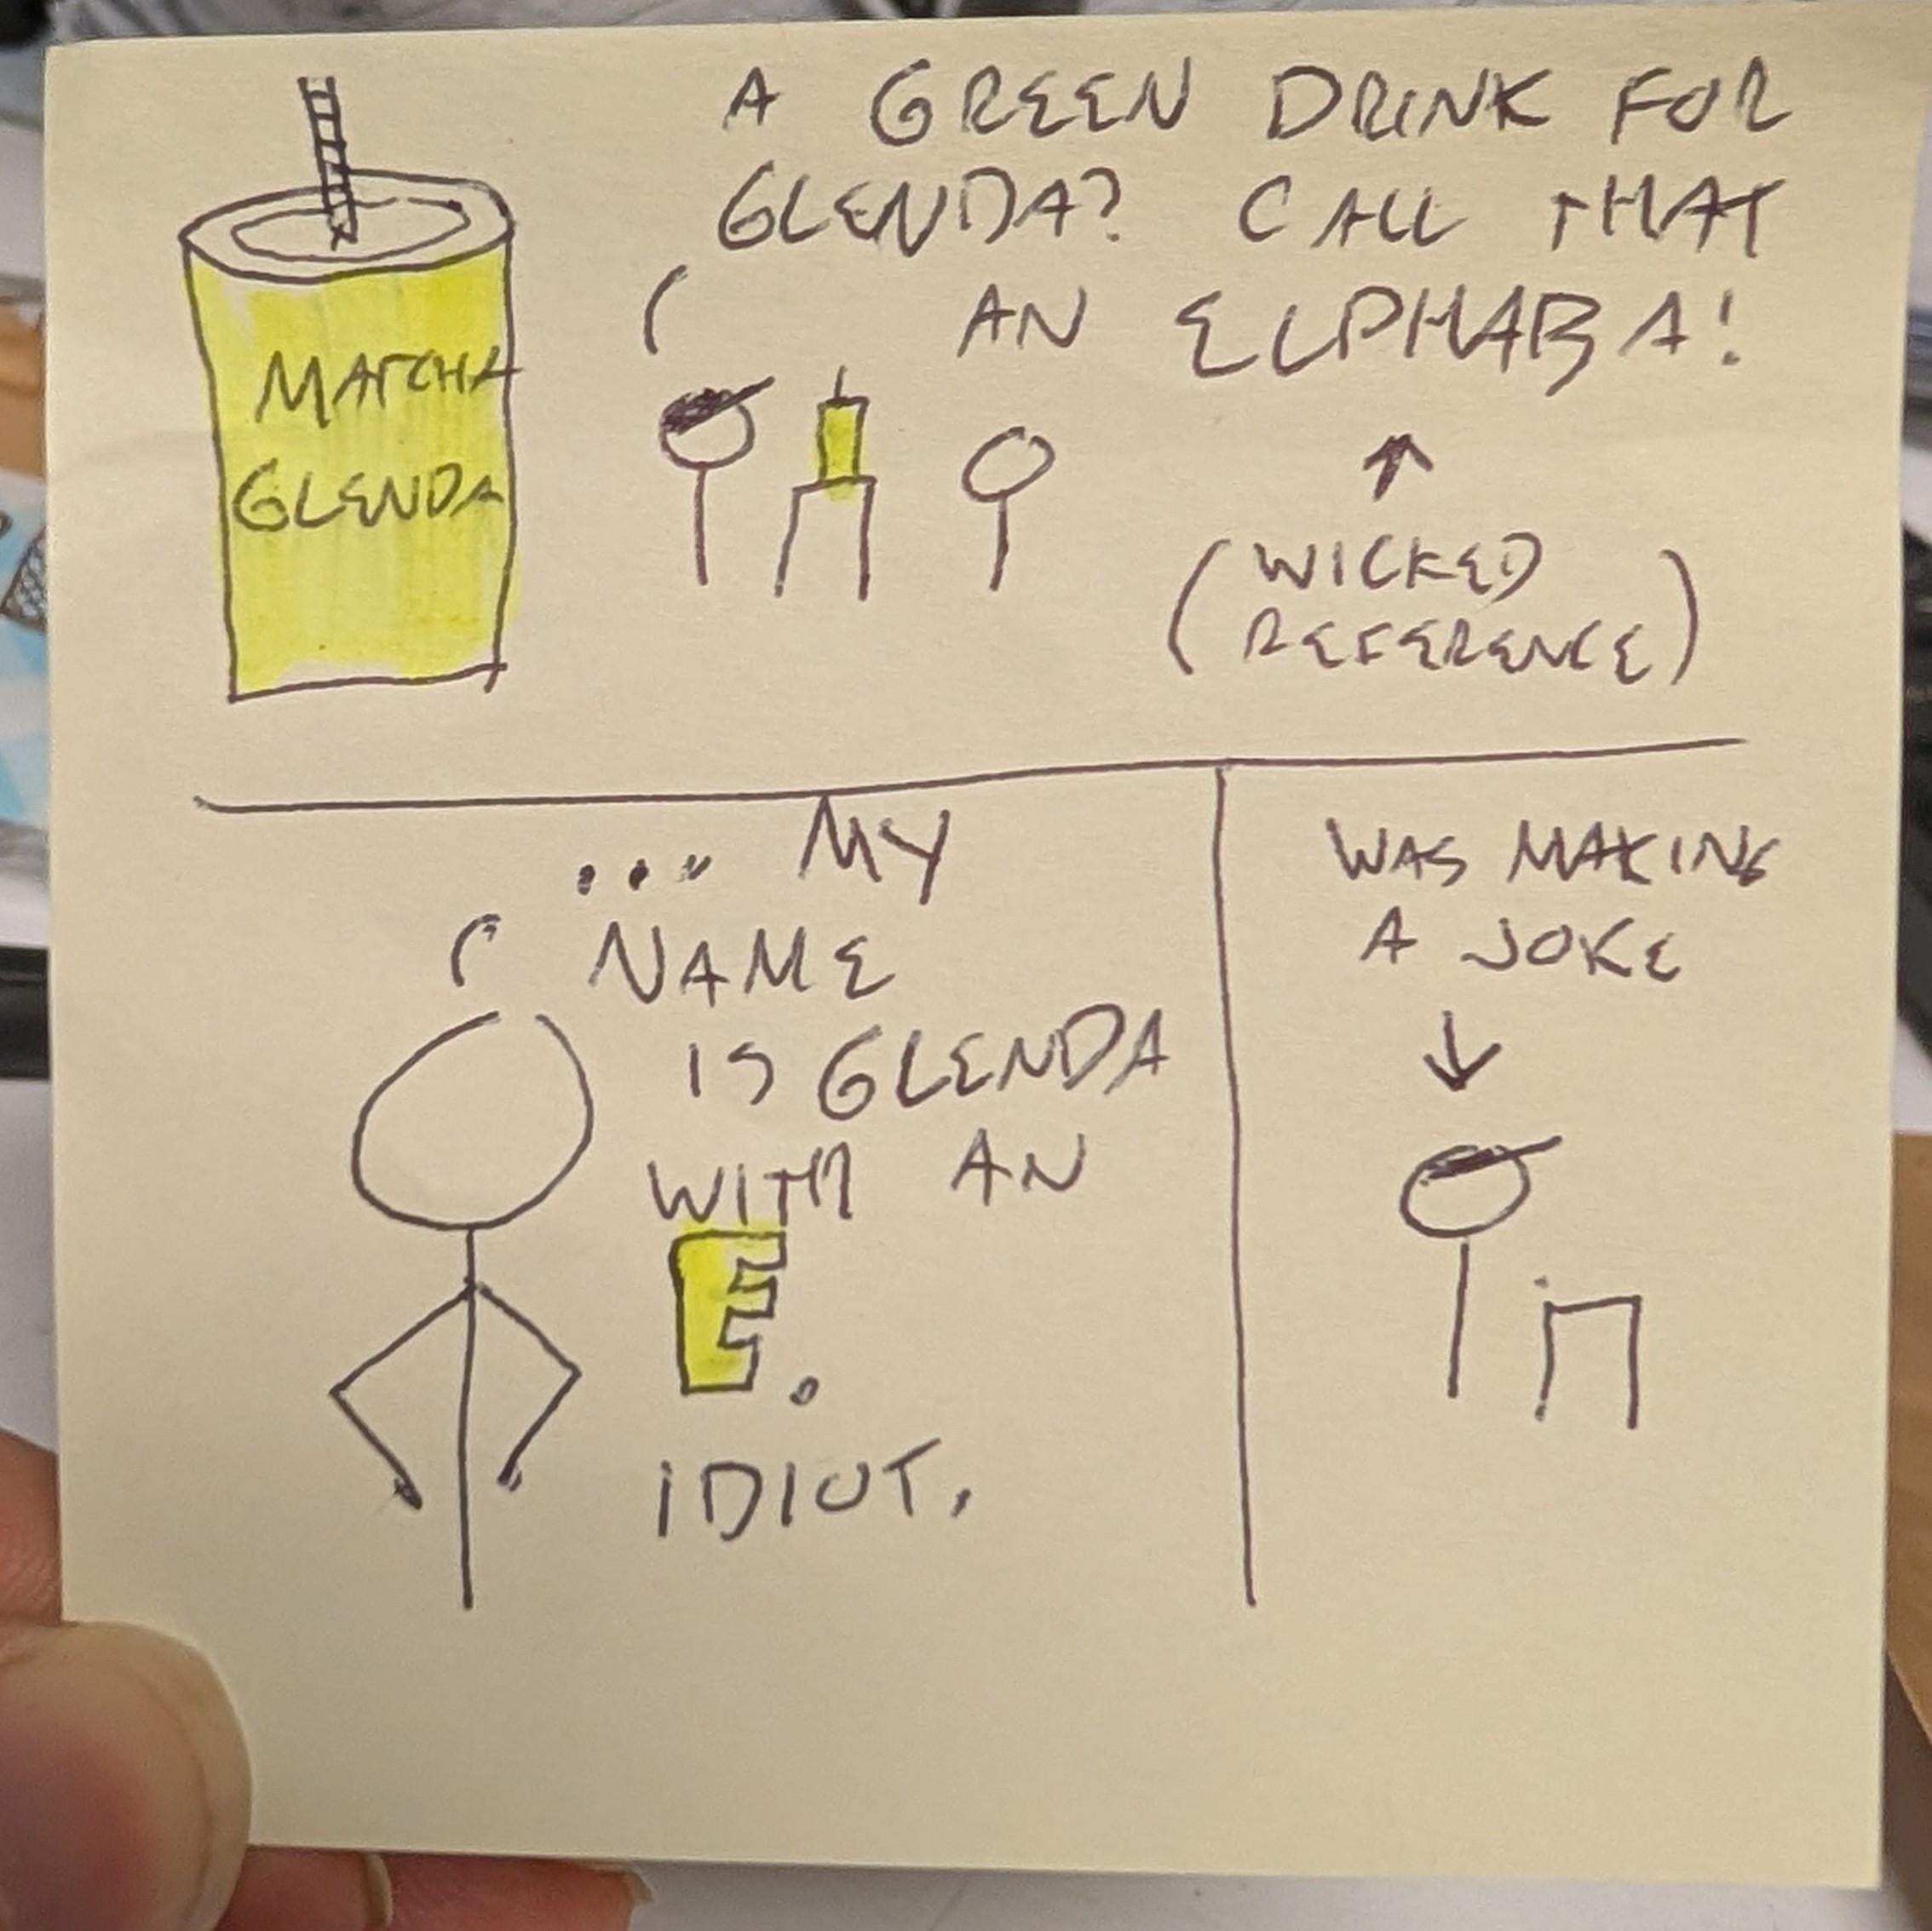 A GREEN DRINK FOR
GLENDA? CALL THAT
AN ELPHABA!
MATCHA
GLENDA
(WICKED
REFERENCE)
... MY
NAME
IS GLENDA
WITH AN
E.
IDIOT.
WAS MAKING
A JOKE